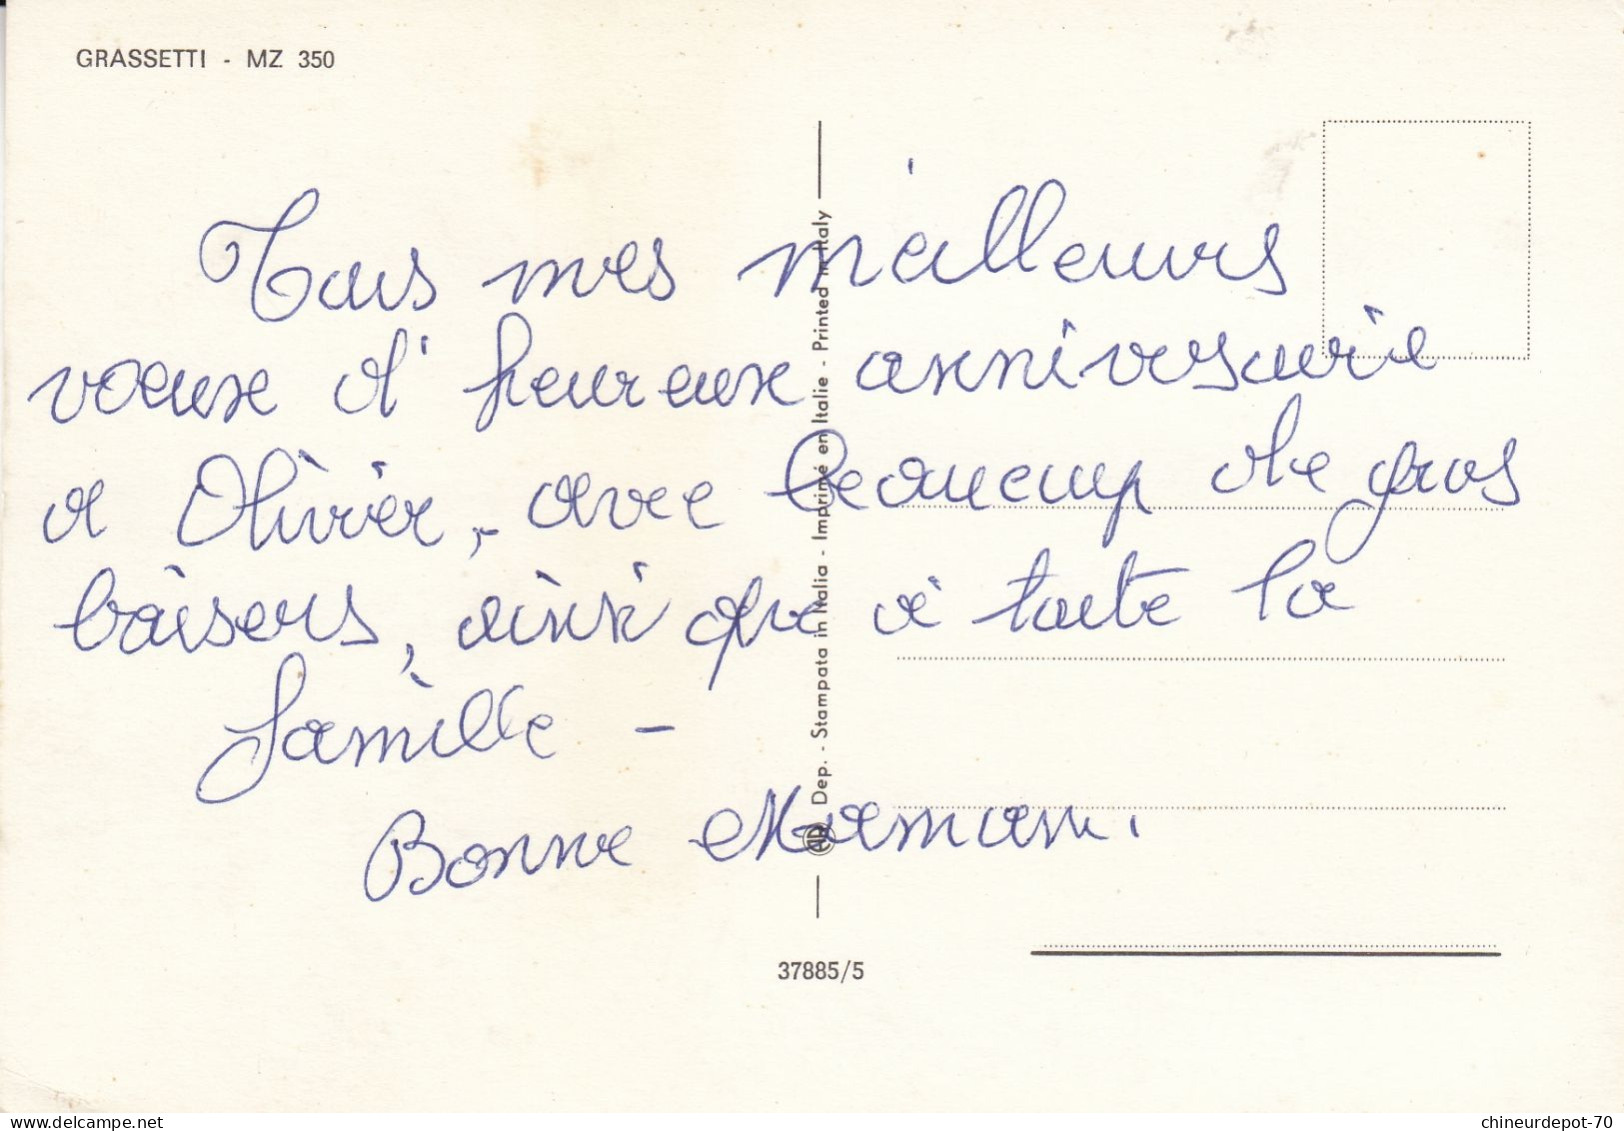 GRASSETTI - MZ 350
Tous mes meilleurs
voeux d'heureux anniversaire
a Olivier, - avec beaucoup de gros
baisers, ainsi que à toute la
famille -
Bonne Maman.
Dep. - Stampata in Italia - Imprimé en Italie - Printed in Italy
37885/5
delcampe.net
chineurdepot-70